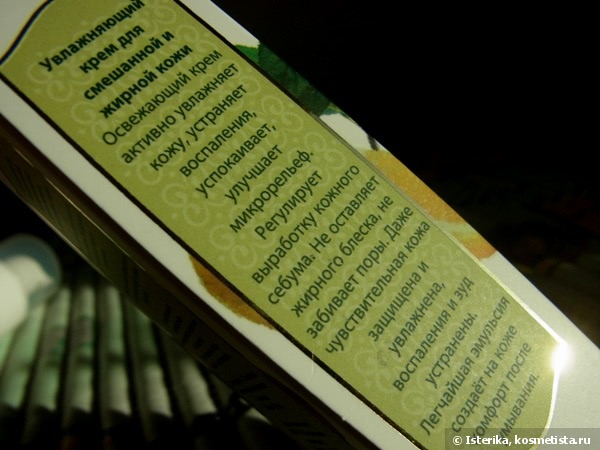 Увлажняющий
крем для
смешанной и
жирной кожи
Освежающий крем
активно увлажняет
кожу, устраняет
воспаления,
успокаивает,
улучшает
микрорельеф.
Регулирует
выработку кожного
себума. Не оставляет
жирного блеска, не
забивает поры. Даже
чувствительная кожа
защищена и
увлажнена,
воспаления и зуд
устранены.
Легчайшая эмульсия
создаёт на коже
комфорт после
умывания.
© Isterika, kosmetista.ru